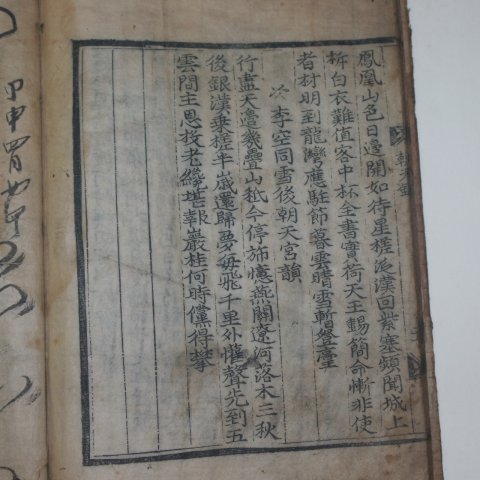 鳳凰山色日邊開如待星槎泛漢回紫塞頻聞城上
柝白衣難值客中杯全書實荷天王錫簡命慚非使
者材明到龍灣應駐節暮雲晴雪暫登臺
次李空同雪後朝天宮韻
行盡天邊幾疊山秖今停斾憶燕關遼河落木三秋
後銀漢乘槎半歲還歸夢每飛千里外懽聲先到五
雲間主恩投老纔堪報巖桂何時儻得攀
朝天
甲申